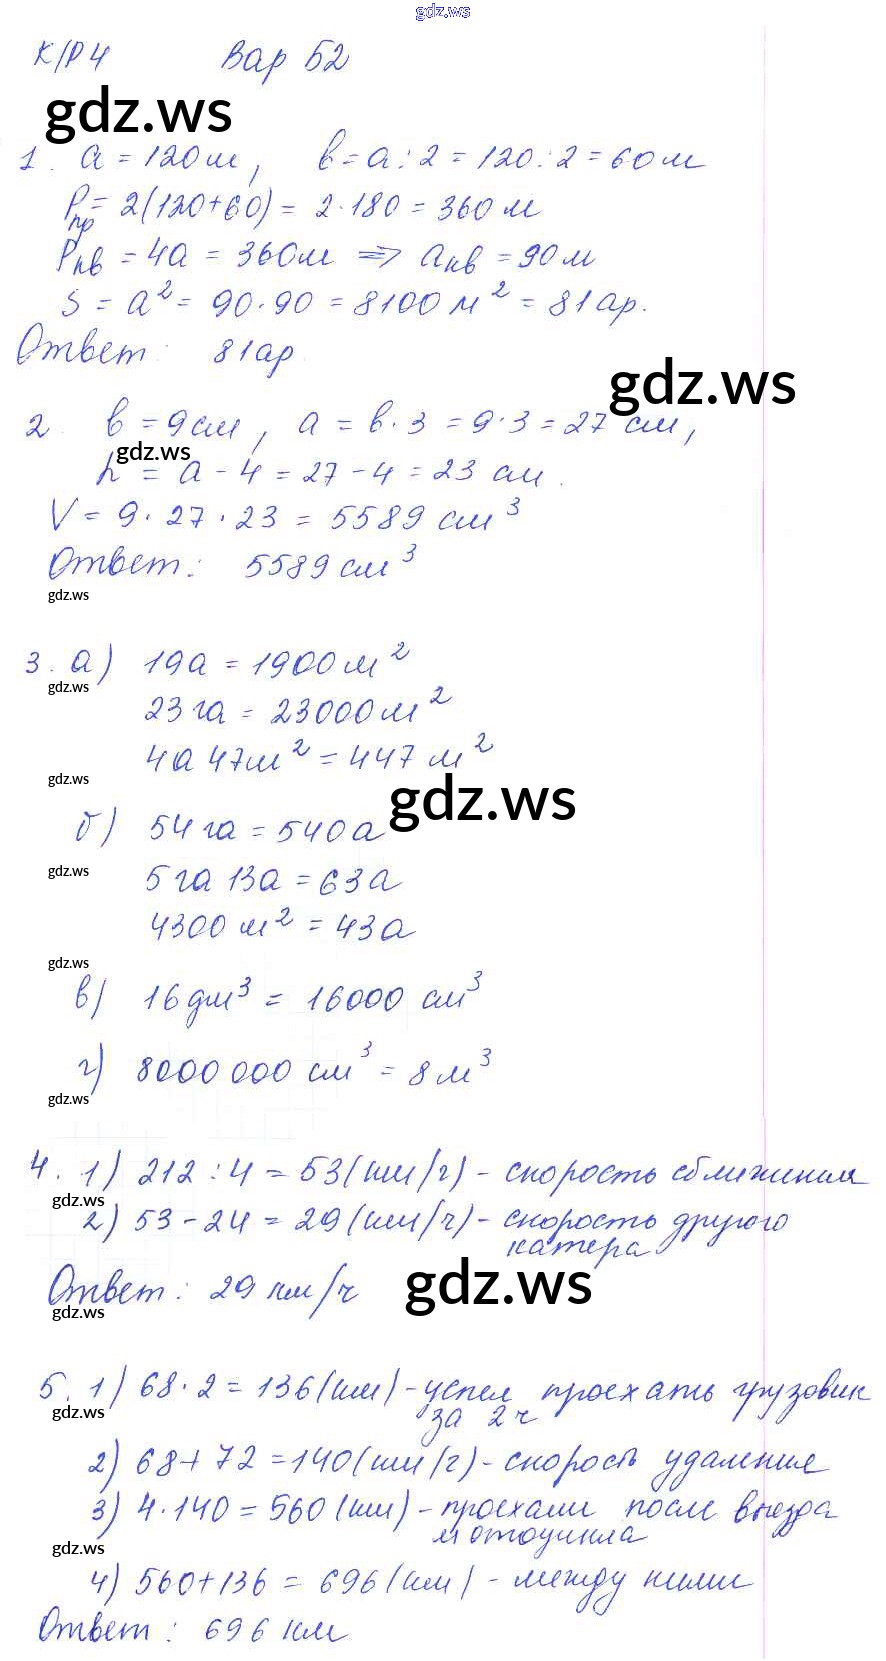 gdz.ws
К/Р 4 Вар Б2
gdz.ws
1. a = 120 м, b = a : 2 = 120 : 2 = 60 м
Pпр = 2(120+60) = 2·180 = 360 м
Pкв = 4a = 360м => aкв = 90 м
S = a² = 90·90 = 8100 м² = 81 ар.
Ответ: 81 ар.
gdz.ws
2. b = 9 см, a = b·3 = 9·3 = 27 см,
gdz.ws
h = a - 4 = 27 - 4 = 23 см.
V = 9·27·23 = 5589 см³
Ответ: 5589 см³
gdz.ws
3. а) 19а = 1900 м²
gdz.ws
23 га = 23000 м²
4а 47м² = 447 м²
gdz.ws
gdz.ws
б) 54 га = 540 а
gdz.ws
5 га 13а = 63а
4300 м² = 43а
gdz.ws
в) 16 дм³ = 16000 см³
г) 8000 000 см³ = 8 м³
gdz.ws
4. 1) 212 : 4 = 53 (км/ч) - скорость сближения
gdz.ws
2) 53 - 24 = 29 (км/ч) - скорость другого
катера
gdz.ws
Ответ: 29 км/ч
gdz.ws
5. 1) 68·2 = 136 (км) - успел проехать грузовик
за 2 ч
gdz.ws
2) 68 + 72 = 140 (км/ч) - скорость удаления
3) 4·140 = 560 (км) - проехали после выезда
мотоцикла
gdz.ws
4) 560 + 136 = 696 (км) - между ними
Ответ: 696 км